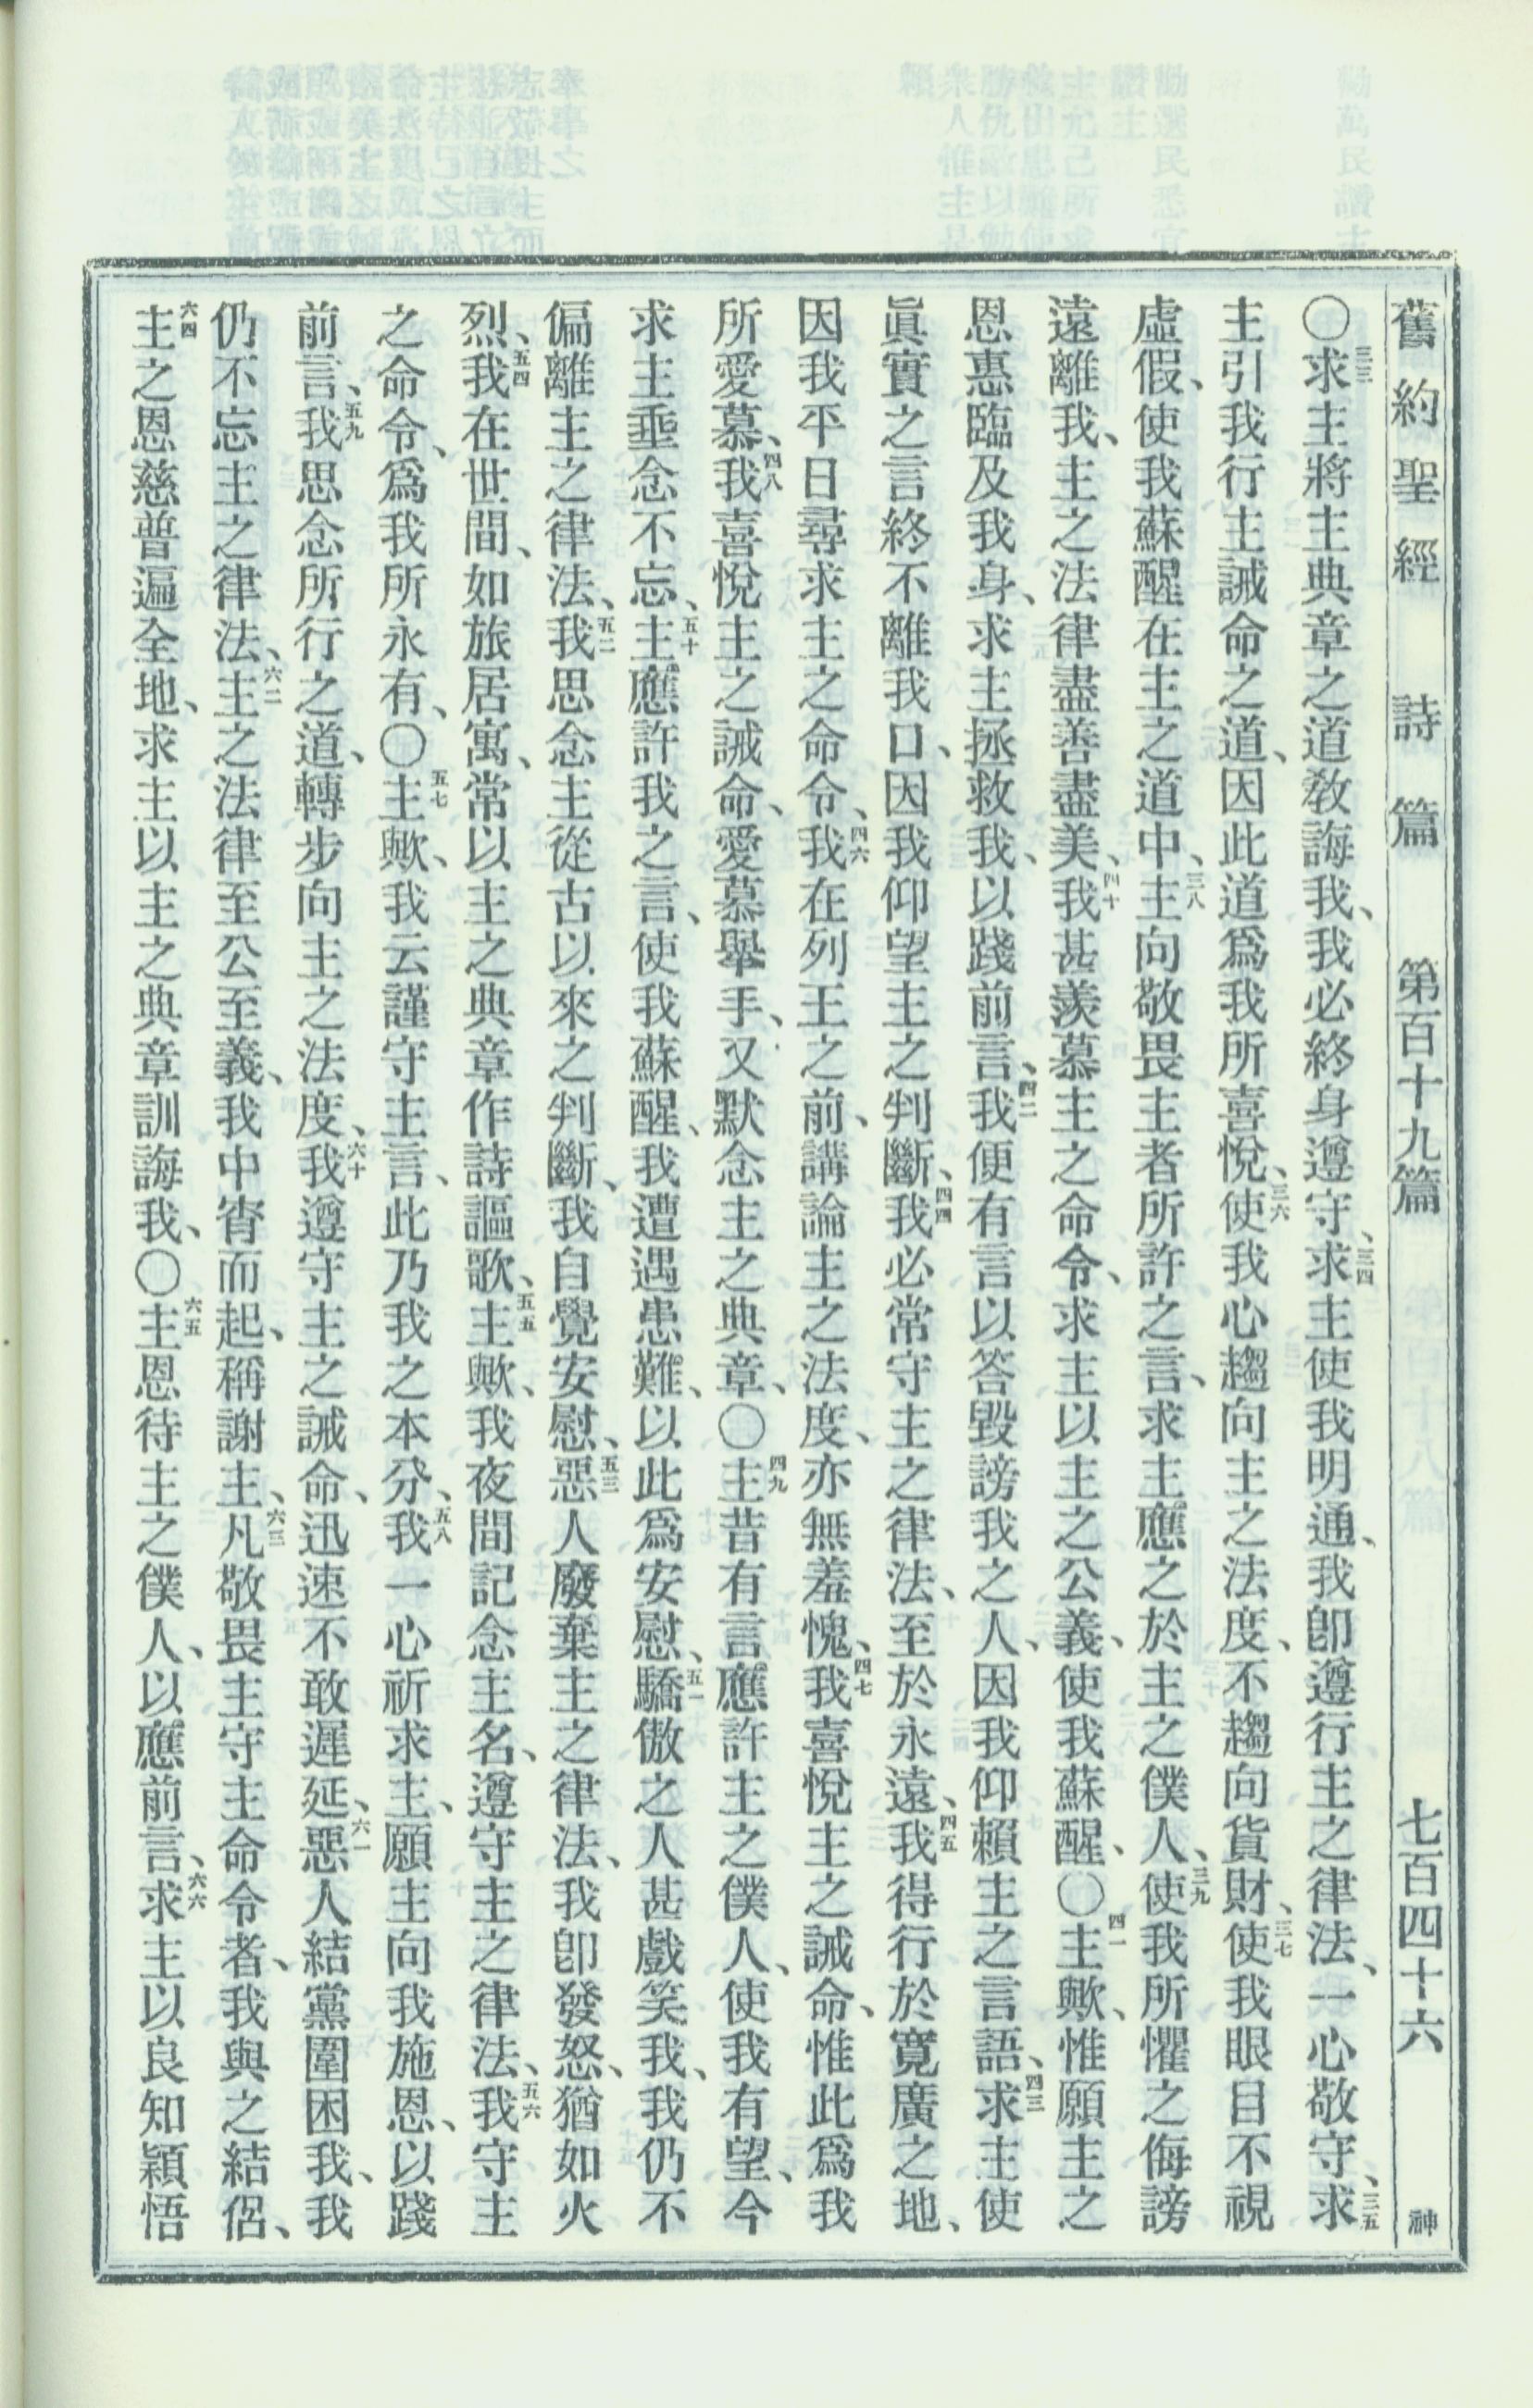 舊約聖經 詩篇 第百十九篇 七百四十六 神
〇三三求主將主典章之道敎誨我、我必終身遵守、三四求主使我明通、我卽遵行主之律法、一心敬守、三五求
主引我行主誡命之道、因此道爲我所喜悅、三六使我心趨向主之法度、不趨向貨財、三七使我眼目不視
虛假、使我蘇醒在主之道中、三八主向敬畏主者所許之言、求主應之於主之僕人、三九使我所懼之侮謗
遠離我、主之法律盡善盡美、四十我甚羨慕主之命令、求主以主之公義、使我蘇醒、〇四一主歟、惟願主之
恩惠臨及我身、求主拯救我、以踐前言、四二我便有言以答毀謗我之人、因我仰賴主之言語、四三求主使
眞實之言終不離我口、因我仰望主之判斷、四四我必常守主之律法、至於永遠、四五我得行於寬廣之地、
因我平日尋求主之命令、四六我在列王之前、講論主之法度、亦無羞愧、四七我喜悅主之誡命、惟此爲我
所愛慕、四八我喜悅主之誡命、愛慕舉手、又默念主之典章、〇四九主昔有言應許主之僕人、使我有望、今
求主垂念不忘、五十主應許我之言、使我蘇醒、我遭遇患難、以此爲安慰、五一驕傲之人甚戲笑我、我仍不
偏離主之律法、五二我思念主從古以來之判斷、我自覺安慰、五三惡人廢棄主之律法、我卽發怒、猶如火
烈、五四我在世間、如旅居寓、常以主之典章作詩謳歌、五五主歟、我夜間記念主名、遵守主之律法、五六我守主
之命令、爲我所永有、〇五七主歟、我云謹守主言、此乃我之本分、五八我一心祈求主、願主向我施恩、以踐
前言、五九我思念所行之道、轉步向主之法度、六十我遵守主之誡命、迅速不敢遲延、六一惡人結黨圍困我、我
仍不忘主之律法、六二主之法律至公至義、我中宵而起、稱謝主、六三凡敬畏主守主命令者、我與之結侶、
六四主之恩慈普遍全地、求主以主之典章訓誨我、〇六五主恩待主之僕人、以應前言、六六求主以良知穎悟